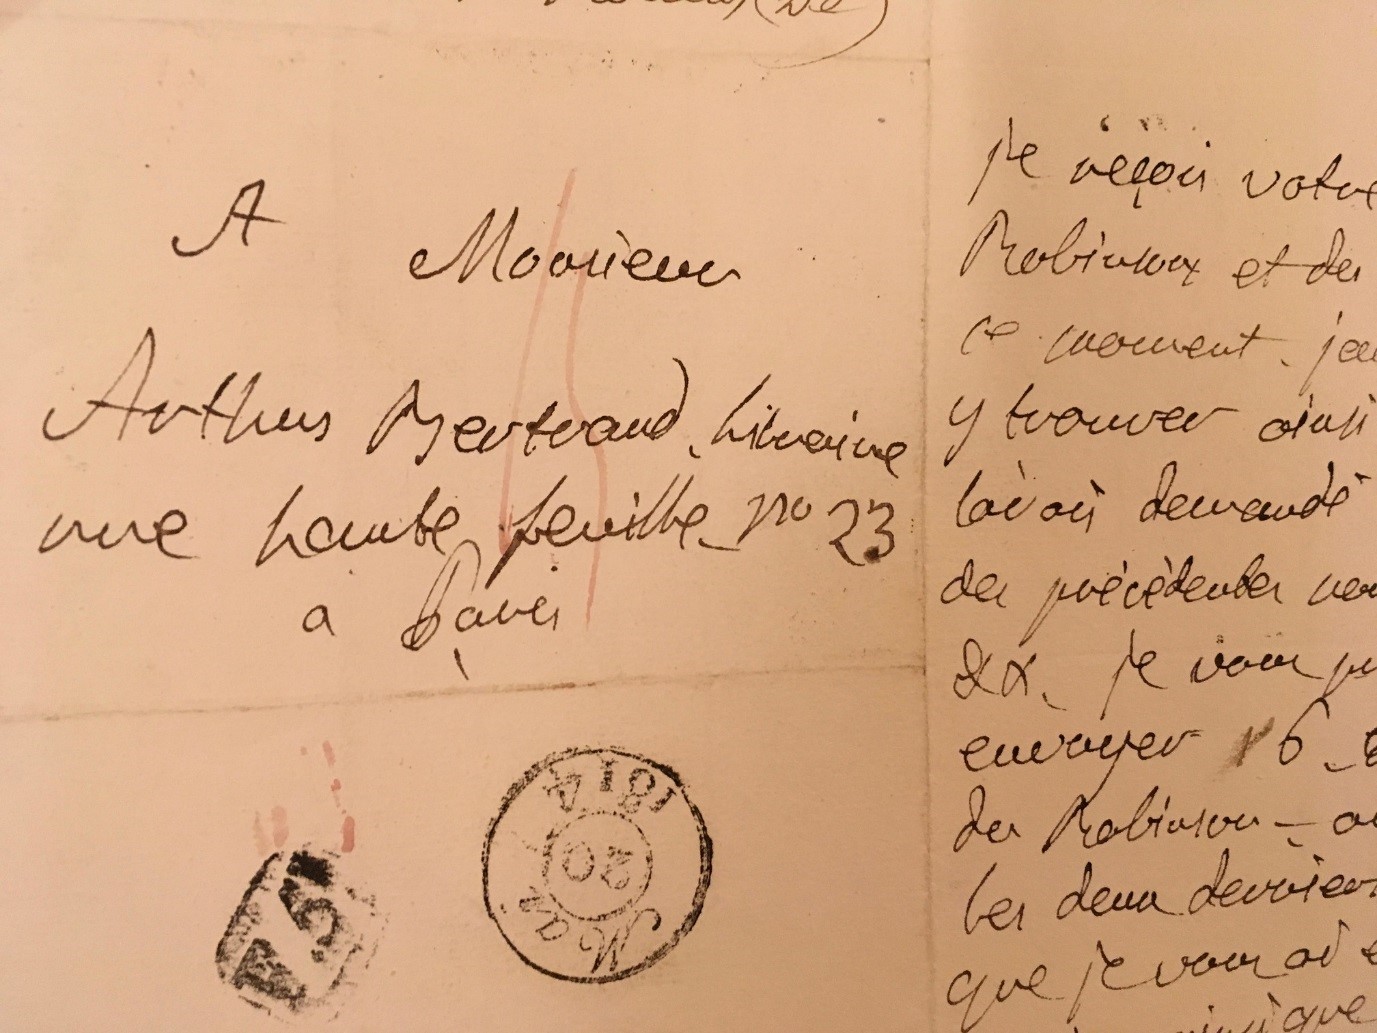 A
Monsieur
Arthus Bertrand, libraire
rue haute feuille no 23
a Paris
1814
20
Mars
Je reçois votre
Robinson et des
ce moment.
y trouver ainsi
l'avois demandé
des précédentes
&x. je vous
envoyer 6
des Robinson -
les deux derniers
que je vous ai